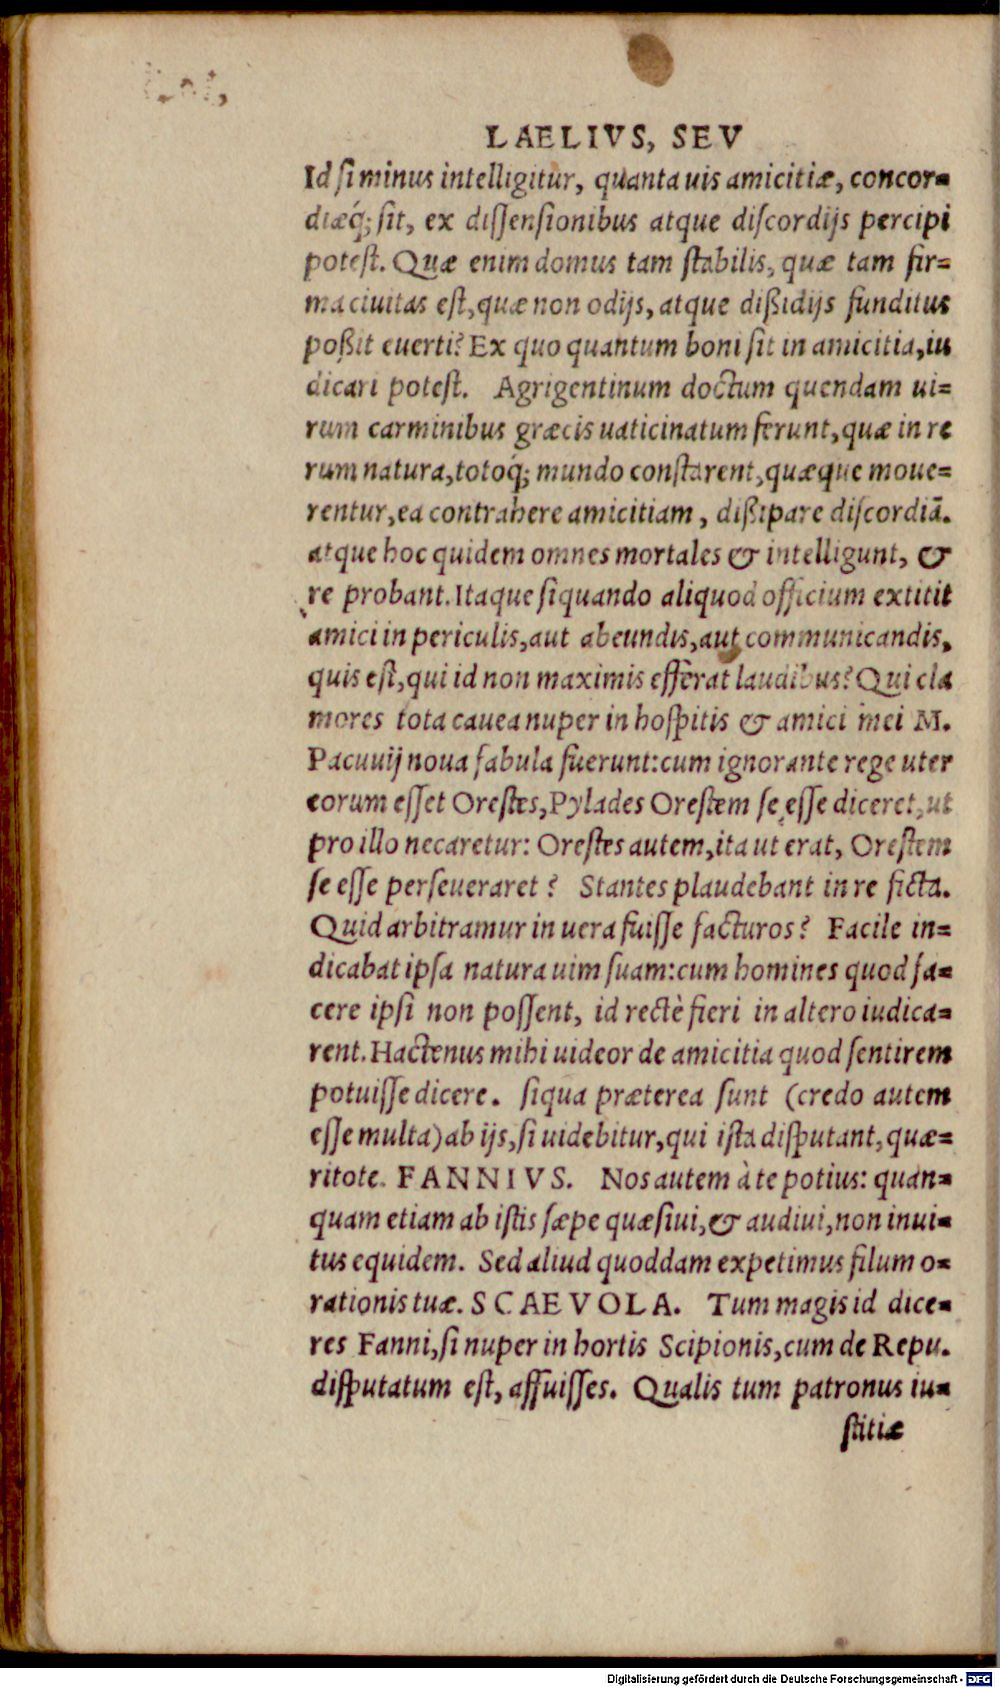 LAELIVS, SEV
Id si minus intelligitur, quanta uis amicitiæ, concor-
diæq́; sit, ex dissensionibus atque discordijs percipi
potest. Quæ enim domus tam stabilis, quæ tam fir-
ma ciuitas est, quæ non odijs, atque dißidijs funditus
poßit euerti? Ex quo quantum boni sit in amicitia, iu
dicari potest. Agrigentinum doctum quendam ui-
rum carminibus græcis uaticinatum ferunt, quæ in re
rum natura, totoq́; mundo constarent, quæque moue-
rentur, ea contrahere amicitiam, dißipare discordiā.
atque hoc quidem omnes mortales & intelligunt, &
re probant. Itaque siquando aliquod officium extitit
amici in periculis, aut abeundis, aut communicandis,
quis est, qui id non maximis efferat laudibus? Qui cla
mores tota cauea nuper in hospitis & amici mei M.
Pacuuij noua fabula fuerunt: cum ignorante rege uter
eorum esset Orestes, Pylades Orestem se esse diceret, ut
pro illo necaretur: Orestes autem, ita ut erat, Orestem
se esse perseueraret? Stantes plaudebant in re ficta.
Quid arbitramur in uera fuisse facturos? Facile in-
dicabat ipsa natura uim suam: cum homines quod fa-
cere ipsi non possent, id rectè fieri in altero iudica-
rent. Hactenus mihi uideor de amicitia quod sentirem
potuisse dicere. siqua præterea sunt (credo autem
esse multa) ab ijs, si uidebitur, qui ista disputant, quæ-
ritote. FANNIVS. Nos autem à te potius: quan-
quam etiam ab istis sæpe quæsiui, & audiui, non inui-
tus equidem. Sed aliud quoddam expetimus filum o-
rationis tuæ. SCAEVOLA. Tum magis id dice-
res Fanni, si nuper in hortis Scipionis, cum de Repu.
disputatum est, affuisses. Qualis tum patronus iu-
stitiæ
Digitalisierung gefördert durch die Deutsche Forschungsgemeinschaft - DFG